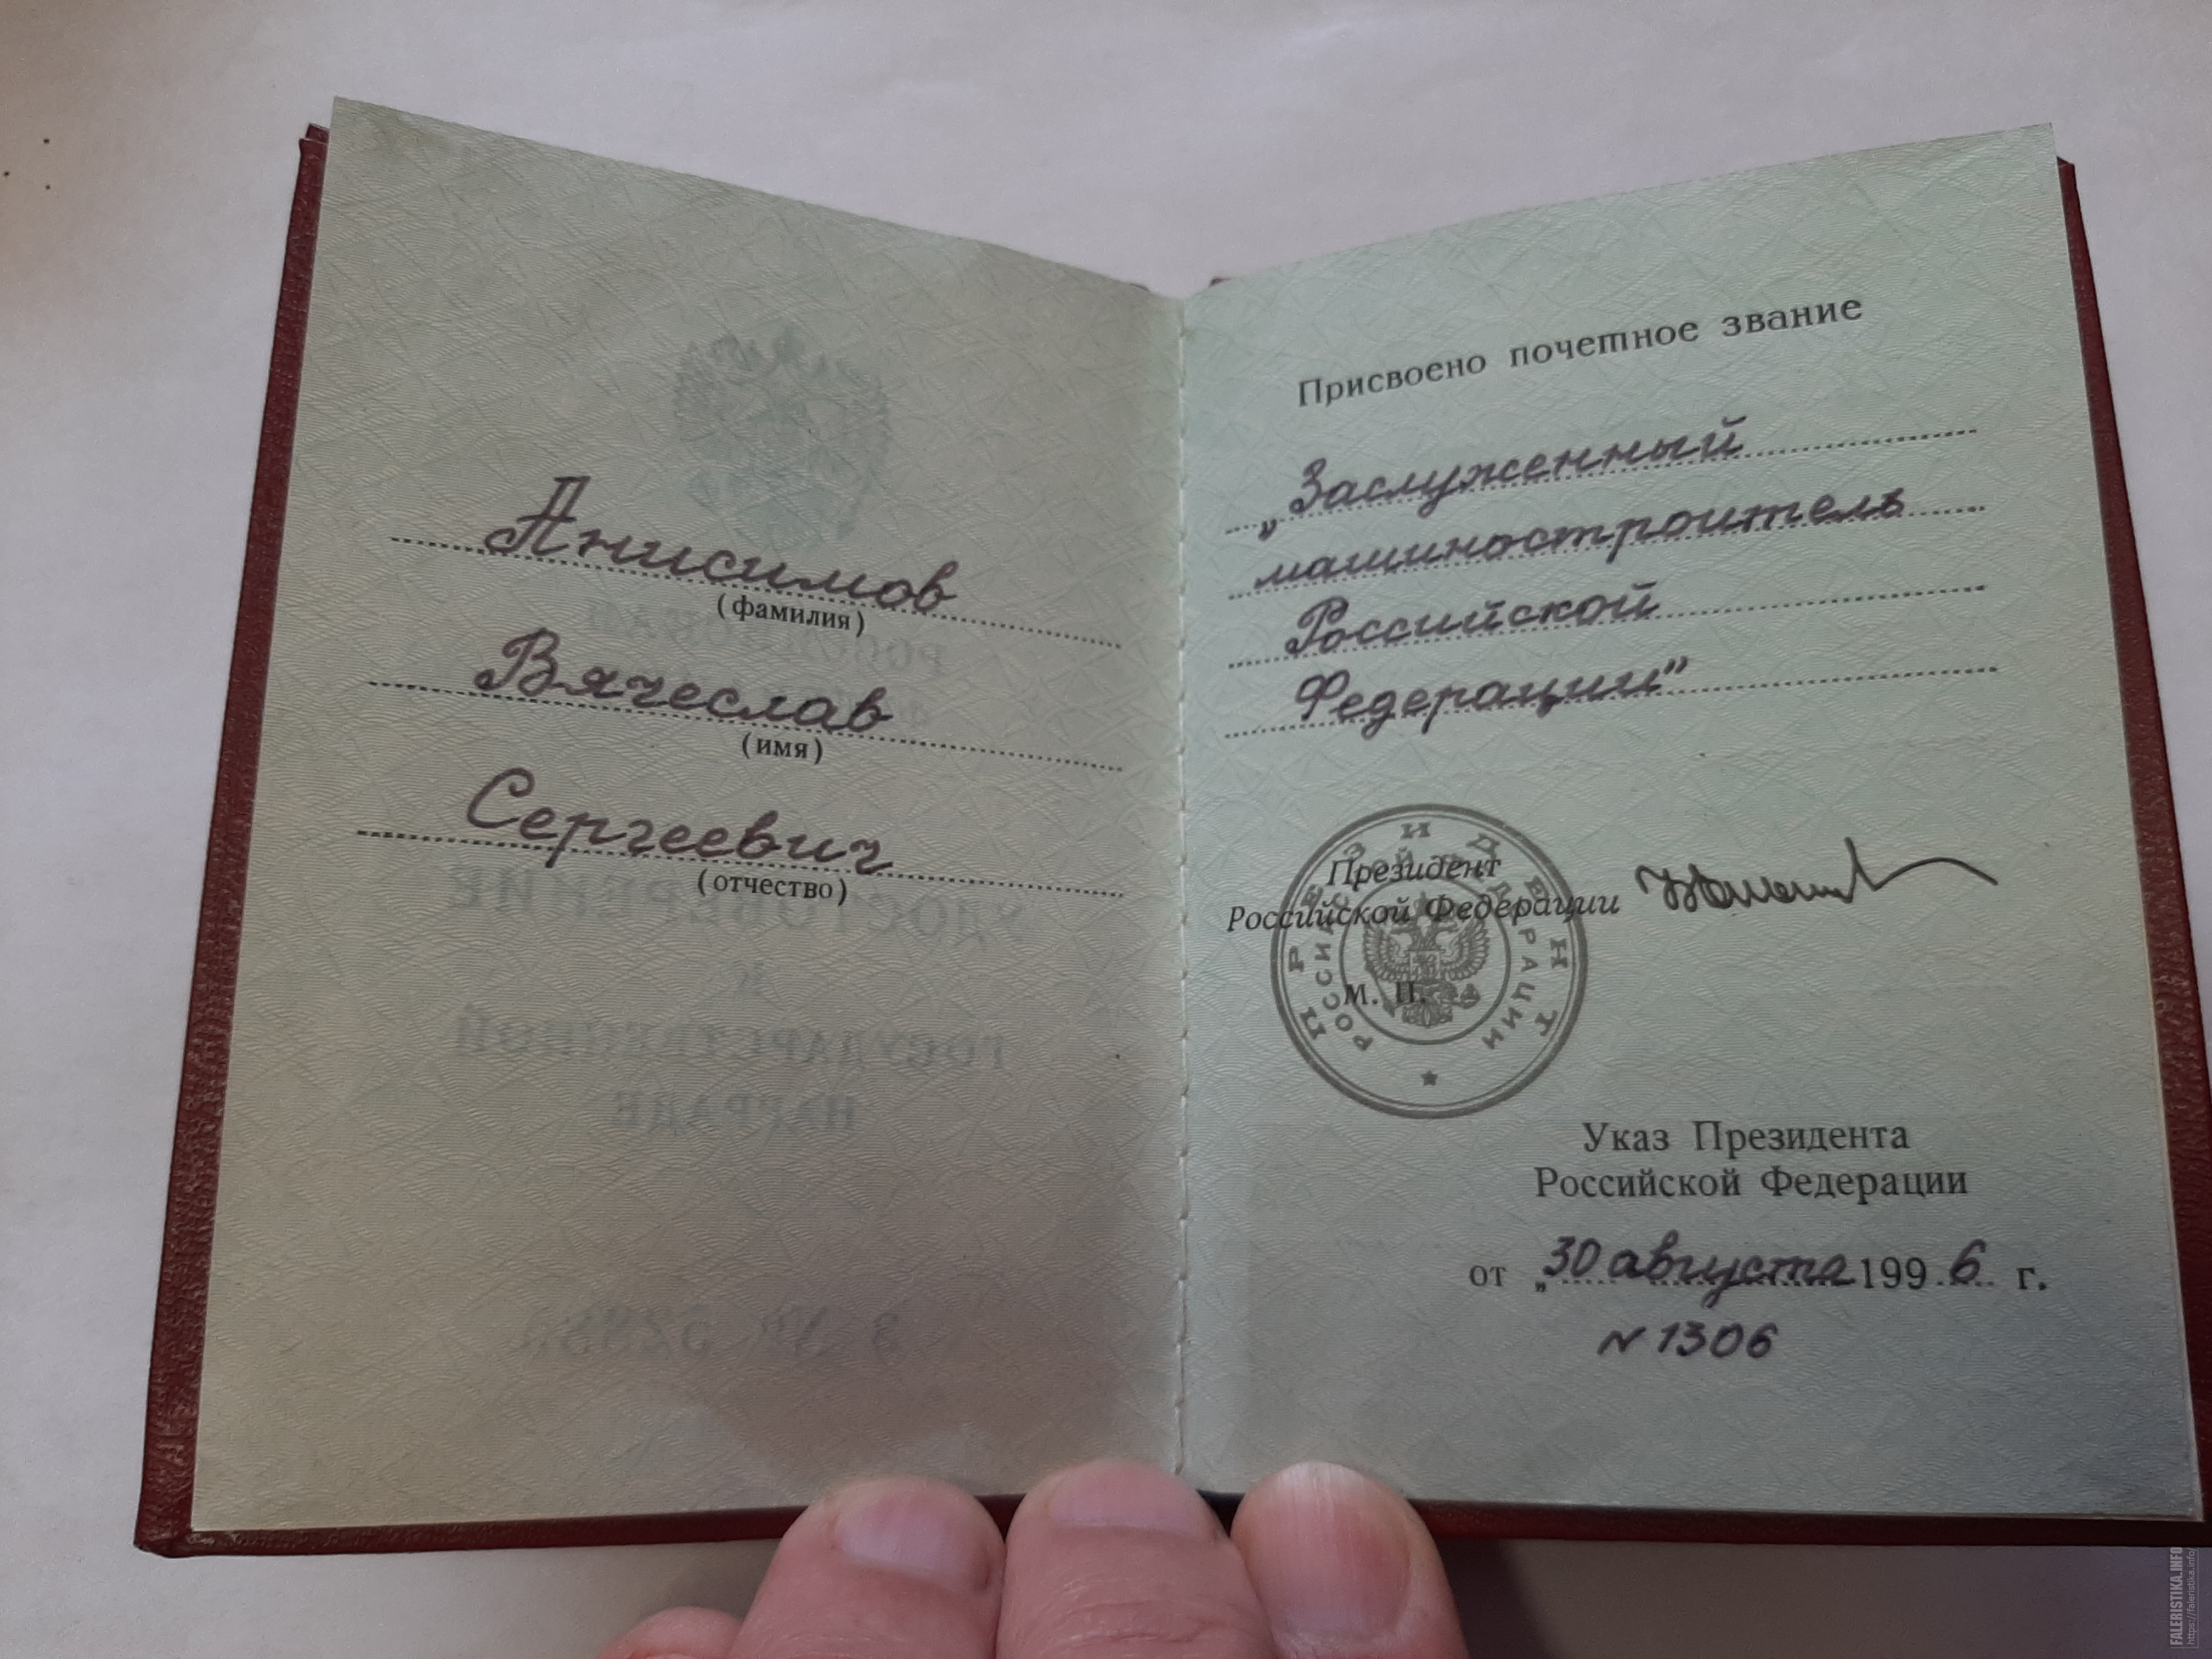 Анисимов
(фамилия)
Вячеслав
(имя)
Сергеевич
(отчество)
Присвоено почетное звание
„Заслуженный
машиностроитель
Российской
Федерации”
ПРЕЗИДЕНТ
РОССИЙСКОЙ ФЕДЕРАЦИИ
Президент
Российской Федерации
М. П.
Указ Президента
Российской Федерации
от „30 августа 1996 г.
N 1306
УДОСТОВЕРЕНИЕ
К
ГОСУДАРСТВЕННОЙ
НАГРАДЕ
FALERISTIKA.INFO
https://faleristika.info/